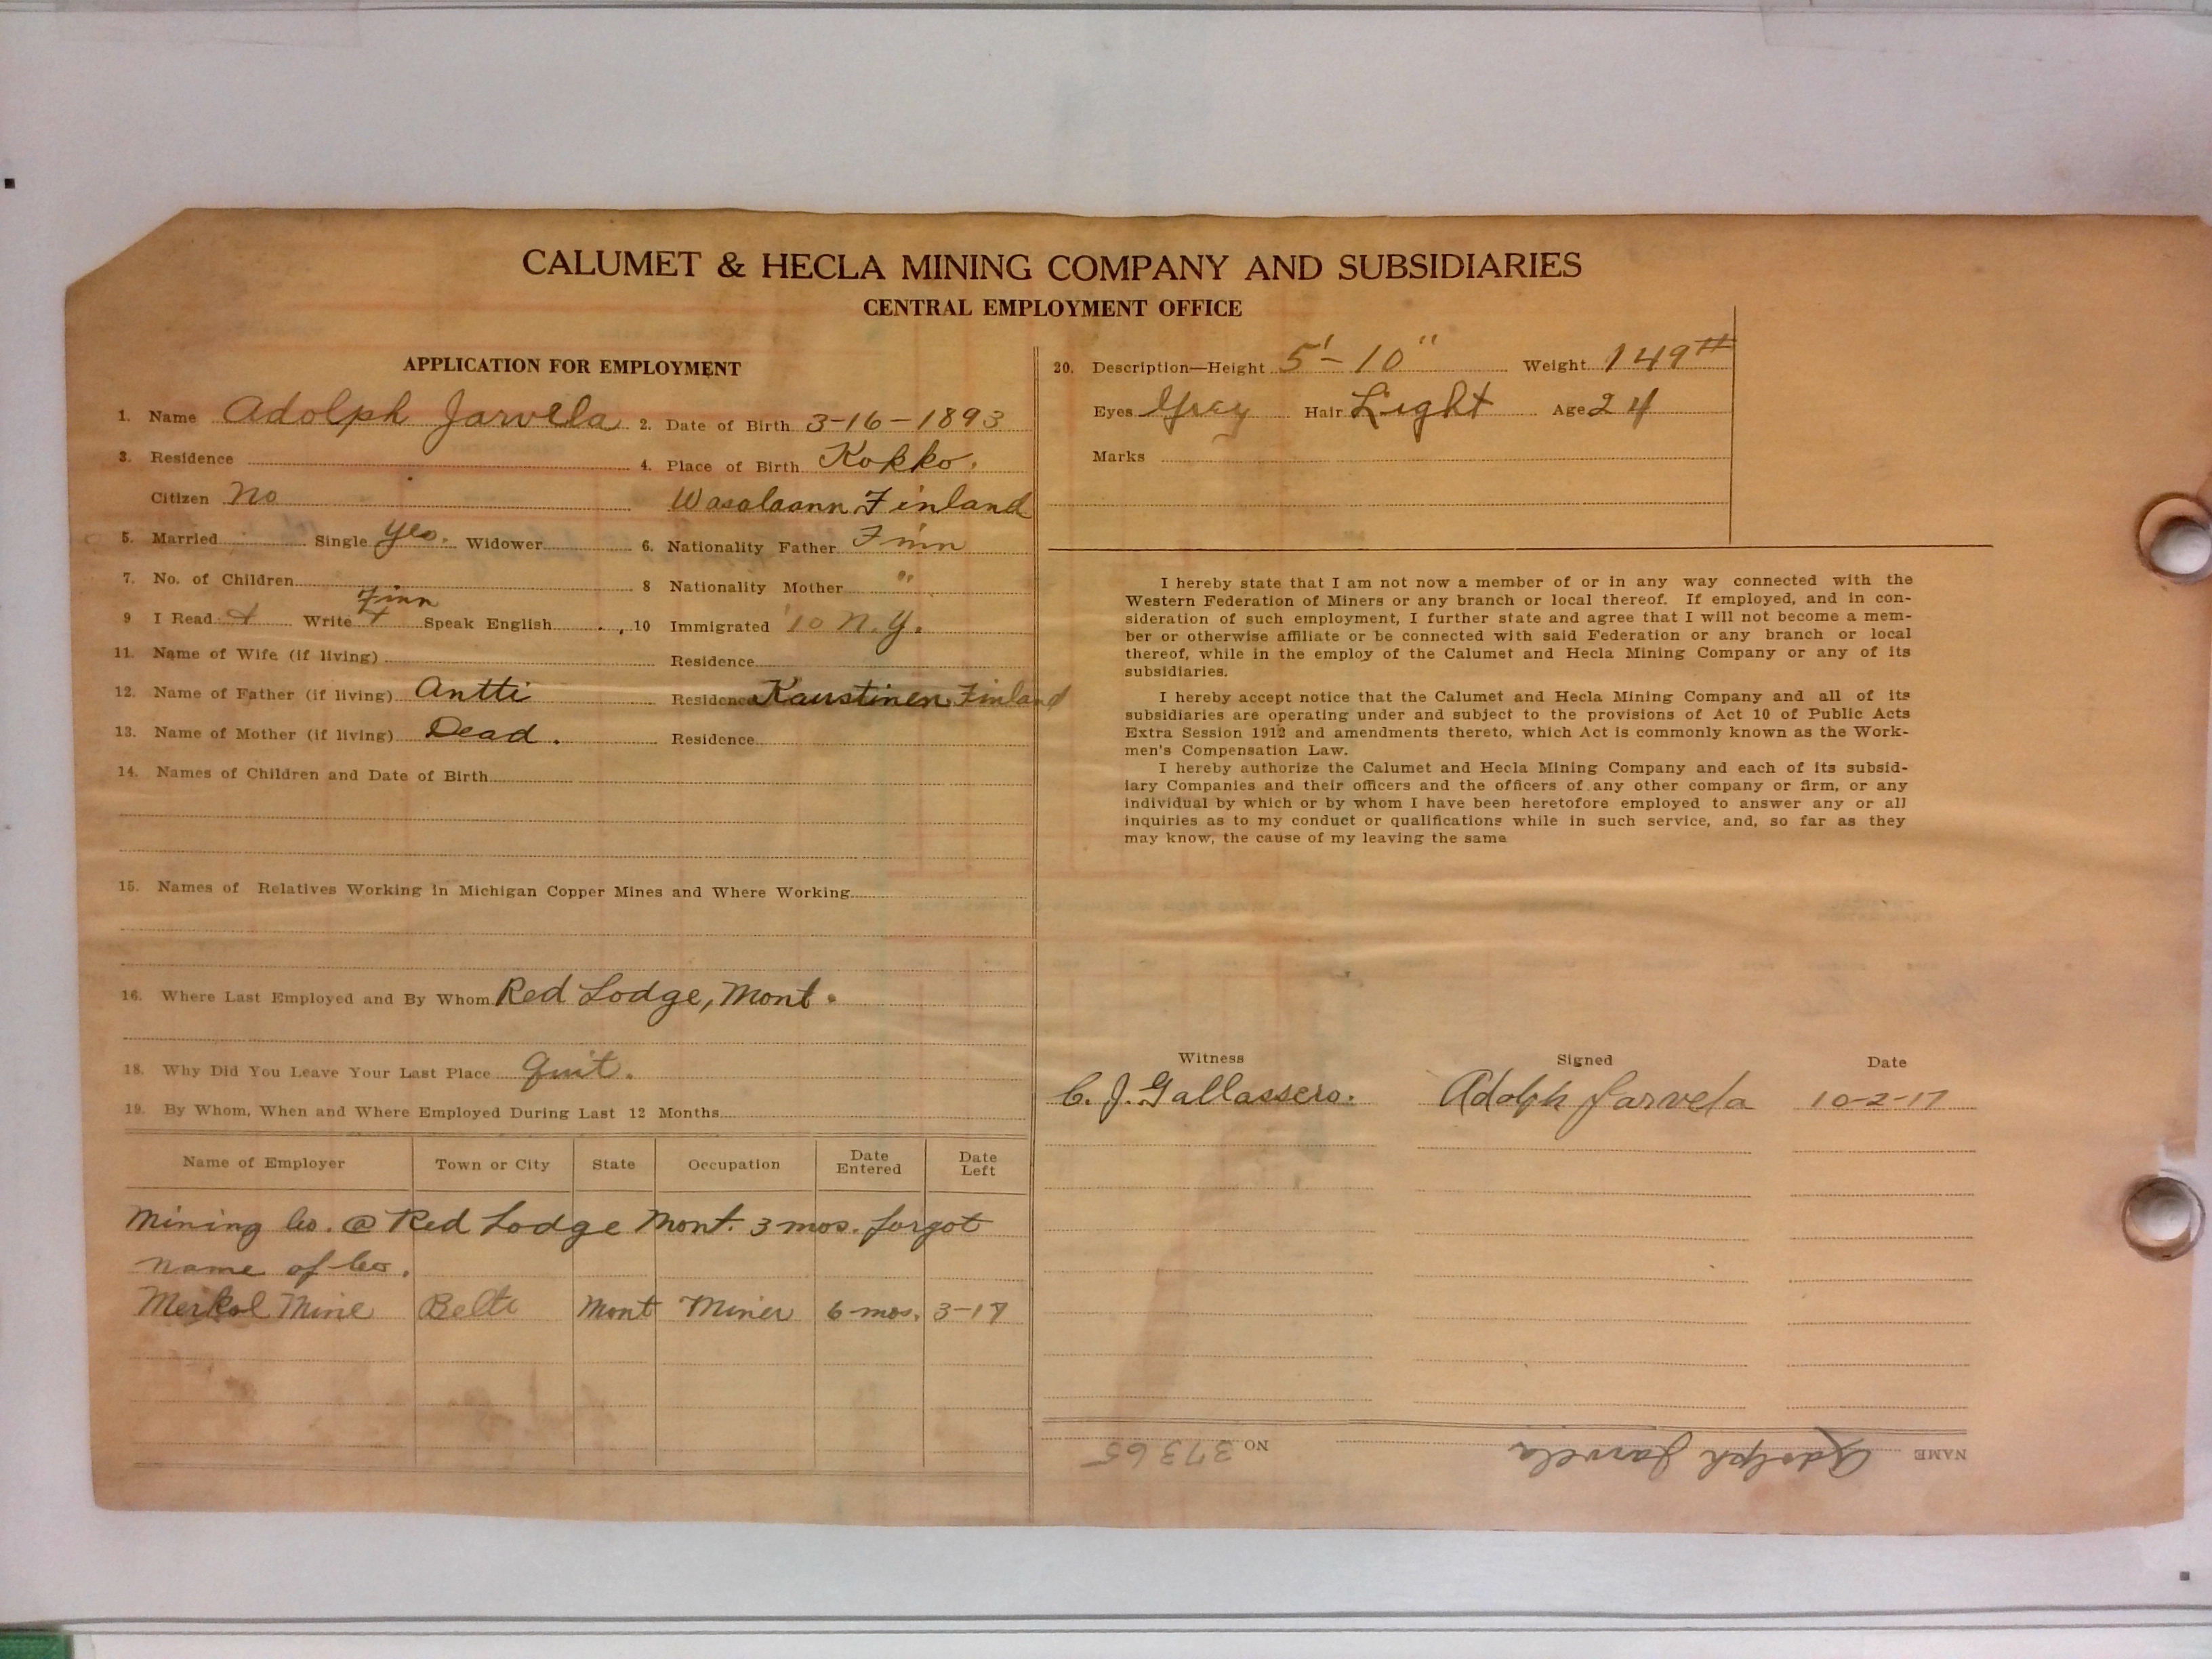 CALUMET & HECLA MINING COMPANY AND SUBSIDIARIES
CENTRAL EMPLOYMENT OFFICE
APPLICATION FOR EMPLOYMENT
1. Name Adolph Jarvela 2. Date of Birth 3-16-1893
3. Residence 4. Place of Birth Kokko.
Citizen No Wasalaann Finland
5. Married Single yes. Widower 6. Nationality Father Finn
7. No. of Children 8 Nationality Mother "
Finn
9 I Read + Write + Speak English 10 Immigrated '10 N.Y.
11. Name of Wife (if living) Residence
12. Name of Father (if living) Antti Residence Kaustinen, Finland
13. Name of Mother (if living) Dead. Residence
14. Names of Children and Date of Birth
15. Names of Relatives Working in Michigan Copper Mines and Where Working
16. Where Last Employed and By Whom Red Lodge, Mont.
18. Why Did You Leave Your Last Place Quit.
19. By Whom, When and Where Employed During Last 12 Months
Name of Employer Town or City State Occupation Date Entered Date Left
Mining Co. @ Red Lodge Mont. 3 mos. forgot
name of Co.
Merkol Mine Belte Mont Miner 6 mos. 3-17
20. Description—Height 5'-10" Weight 149#
Eyes Grey Hair Light Age 24
Marks
I hereby state that I am not now a member of or in any way connected with the
Western Federation of Miners or any branch or local thereof. If employed, and in con-
sideration of such employment, I further state and agree that I will not become a mem-
ber or otherwise affiliate or be connected with said Federation or any branch or local
thereof, while in the employ of the Calumet and Hecla Mining Company or any of its
subsidiaries.
I hereby accept notice that the Calumet and Hecla Mining Company and all of its
subsidiaries are operating under and subject to the provisions of Act 10 of Public Acts
Extra Session 1912 and amendments thereto, which Act is commonly known as the Work-
men's Compensation Law.
I hereby authorize the Calumet and Hecla Mining Company and each of its subsid-
iary Companies and their officers and the officers of any other company or firm, or any
individual by which or by whom I have been heretofore employed to answer any or all
inquiries as to my conduct or qualifications while in such service, and, so far as they
may know, the cause of my leaving the same
Witness Signed Date
C. J. Gallassero. Adolph Jarvela 10-2-17
NAME Adolph Jarvela NO 37365